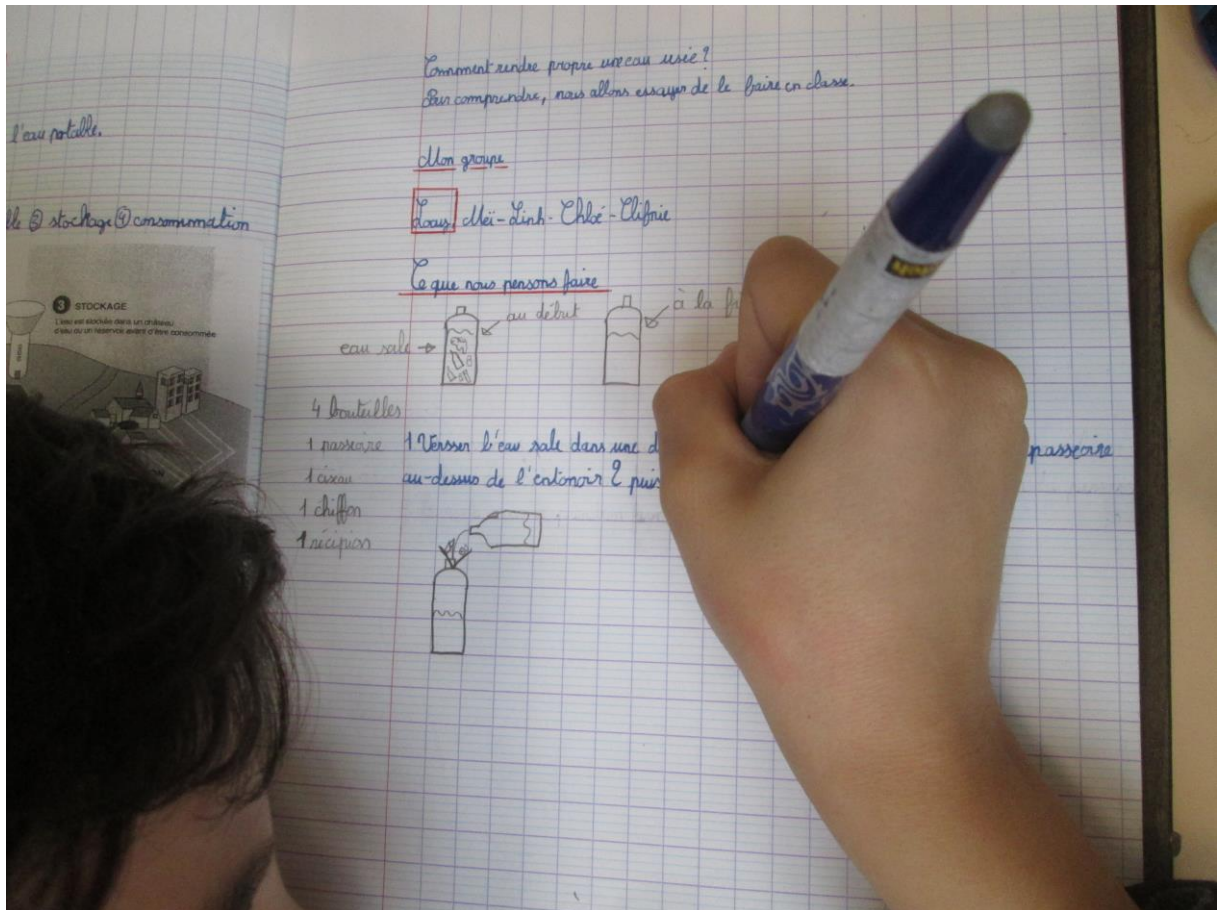 l'eau potable.
② stockage ④ consommation
3 STOCKAGE
L'eau est stockée dans un château
d'eau ou un réservoir avant d'être consommée
Comment rendre propre une eau usée ?
Pour comprendre, nous allons essayer de le faire en classe.
Mon groupe
Louis Meï-Linh - Chloé -
Ce que nous pensons faire
au début
à la
eau sale
4 bouteilles
1 passoire
1 ciseau
1 chiffon
1 récipion
1 Versser l'eau sale dans une
passoire
au-dessus de l'entonoir 2 puis